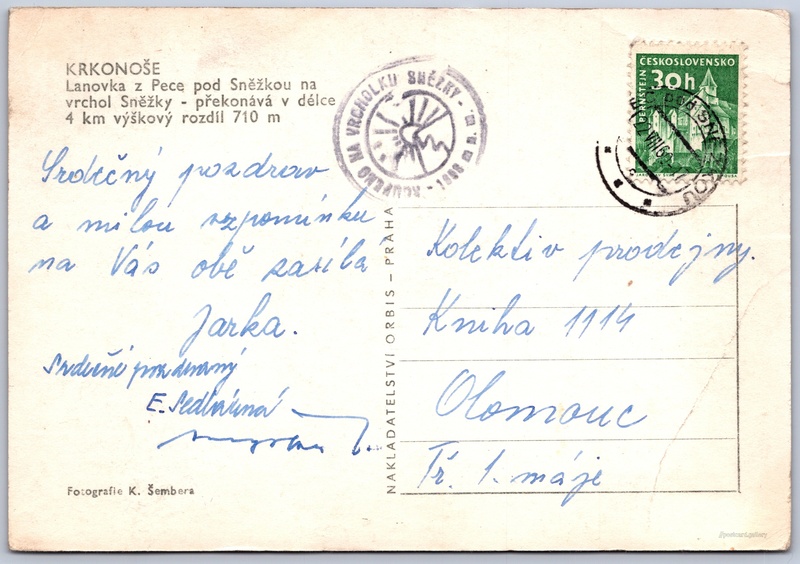 KRKONOŠE
Lanovka z Pece pod Sněžkou na
vrchol Sněžky - překonává v délce
4 km výškový rozdíl 710 m
ZAKOUPENO NA VRCHOLKU SNĚŽKY - 1603 m n. m.
ČESKOSLOVENSKO
30h
PERNŠTEJN
POD SNĚŽKOU
Srdečný pozdrav
a milou vzpomínku
na Vás obě zasílá
Jarka.
Srdečné pozdravy
E. Sedlářiná
NAKLADATELSTVÍ ORBIS – PRAHA
Kolektiv prodejny.
Kniha 1114
Olomouc
Tř. 1. máje
Fotografie K. Šembera